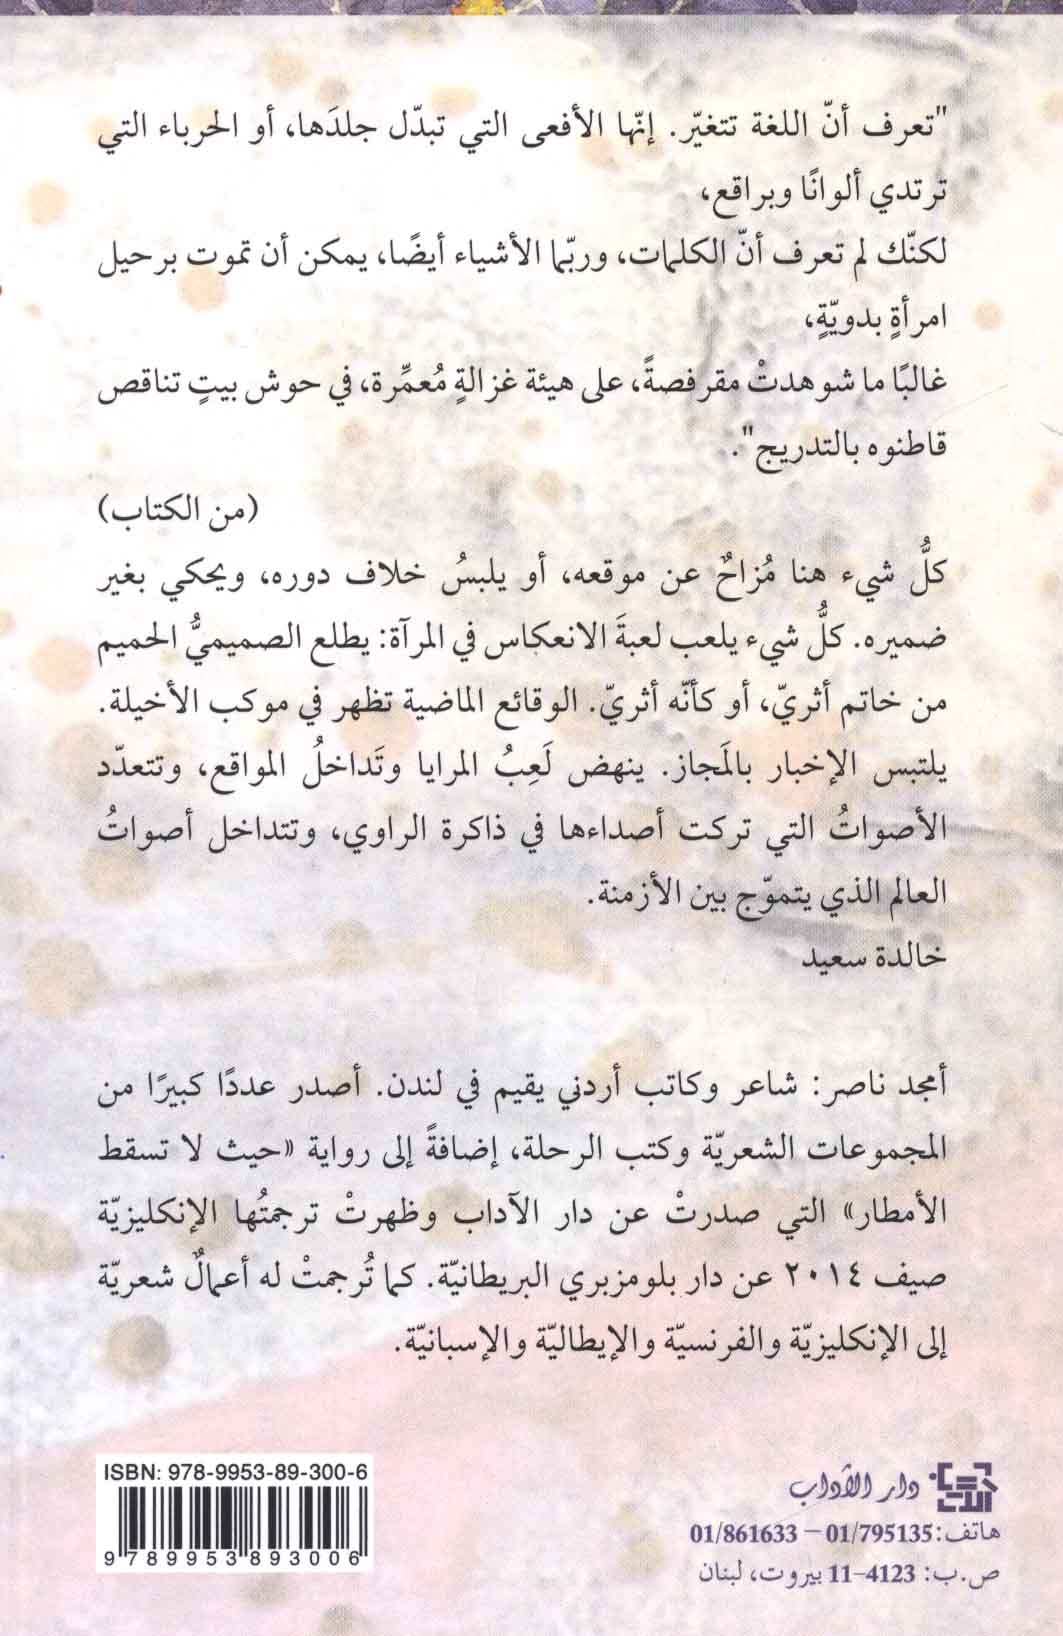 "تعرف أنّ اللغة تتغيّر. إنّها الأفعى التي تبدّل جلدَها، أو الحرباء التي
ترتدي ألوانًا وبراقع،
لكنّك لم تعرف أنّ الكلمات، وربّما الأشياء أيضًا، يمكن أن تموت برحيل
امرأةٍ بدويّةٍ،
غالبًا ما شوهدتْ مقرفصةً، على هيئة غزالةٍ مُعمِّرة، في حوش بيتٍ تناقص
قاطنوه بالتدريج".
(من الكتاب)
كلُّ شيء هنا مُزاحٌ عن موقعه، أو يلبسُ خلاف دوره، ويحكي بغير
ضميره. كلُّ شيء يلعب لعبةَ الانعكاس في المرآة: يطلع الصميميُّ الحميم
من خاتم أثريّ، أو كأنّه أثريّ. الوقائع الماضية تظهر في موكب الأخيلة.
يلتبس الإخبار بالمَجاز. ينهض لَعِبُ المرايا وتَداخلُ المواقع، وتتعدّد
الأصواتُ التي تركت أصداءها في ذاكرة الراوي، وتتداخل أصواتُ
العالم الذي يتموّج بين الأزمنة.
خالدة سعيد
أمجد ناصر: شاعر وكاتب أردني يقيم في لندن. أصدر عددًا كبيرًا من
المجموعات الشعريّة وكتب الرحلة، إضافةً إلى رواية «حيث لا تسقط
الأمطار» التي صدرتْ عن دار الآداب وظهرتْ ترجمتُها الإنكليزيّة
صيف ٢٠١٤ عن دار بلومزبري البريطانيّة. كما تُرجمتْ له أعمالٌ شعريّة
إلى الإنكليزيّة والفرنسيّة والإيطاليّة والإسبانيّة.
دار الآداب
هاتف: 01/795135 – 01/861633
ص.ب: 4123-11 بيروت، لبنان
ISBN: 978-9953-89-300-6
9 789953 893006